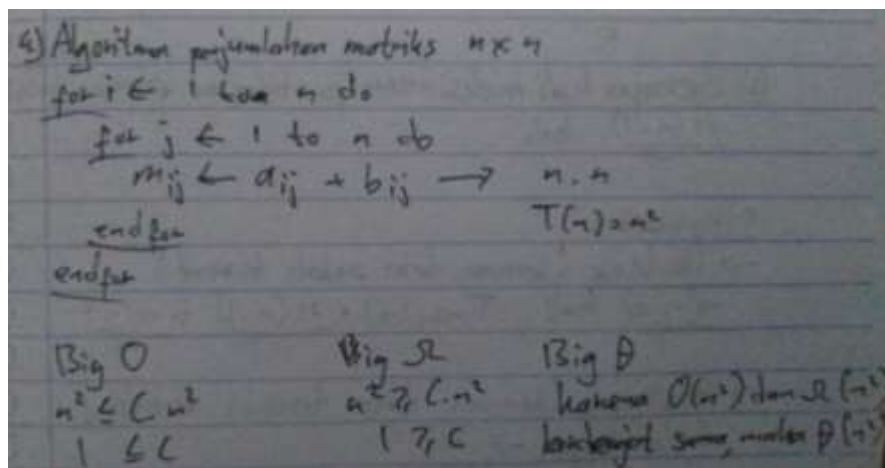 4) Algoritma penjumlahan matriks n x n
for i ← 1 to n do
for j ← 1 to n do
m_ij ← a_ij + b_ij → n . n
endfor T(n) = n²
endfor
Big O Big Ω Big θ
n² ≤ C. n² n² ≥ C. n² karena O(n²) dan Ω(n²)
1 ≤ C 1 ≥ C berderajat sama, maka θ(n²)